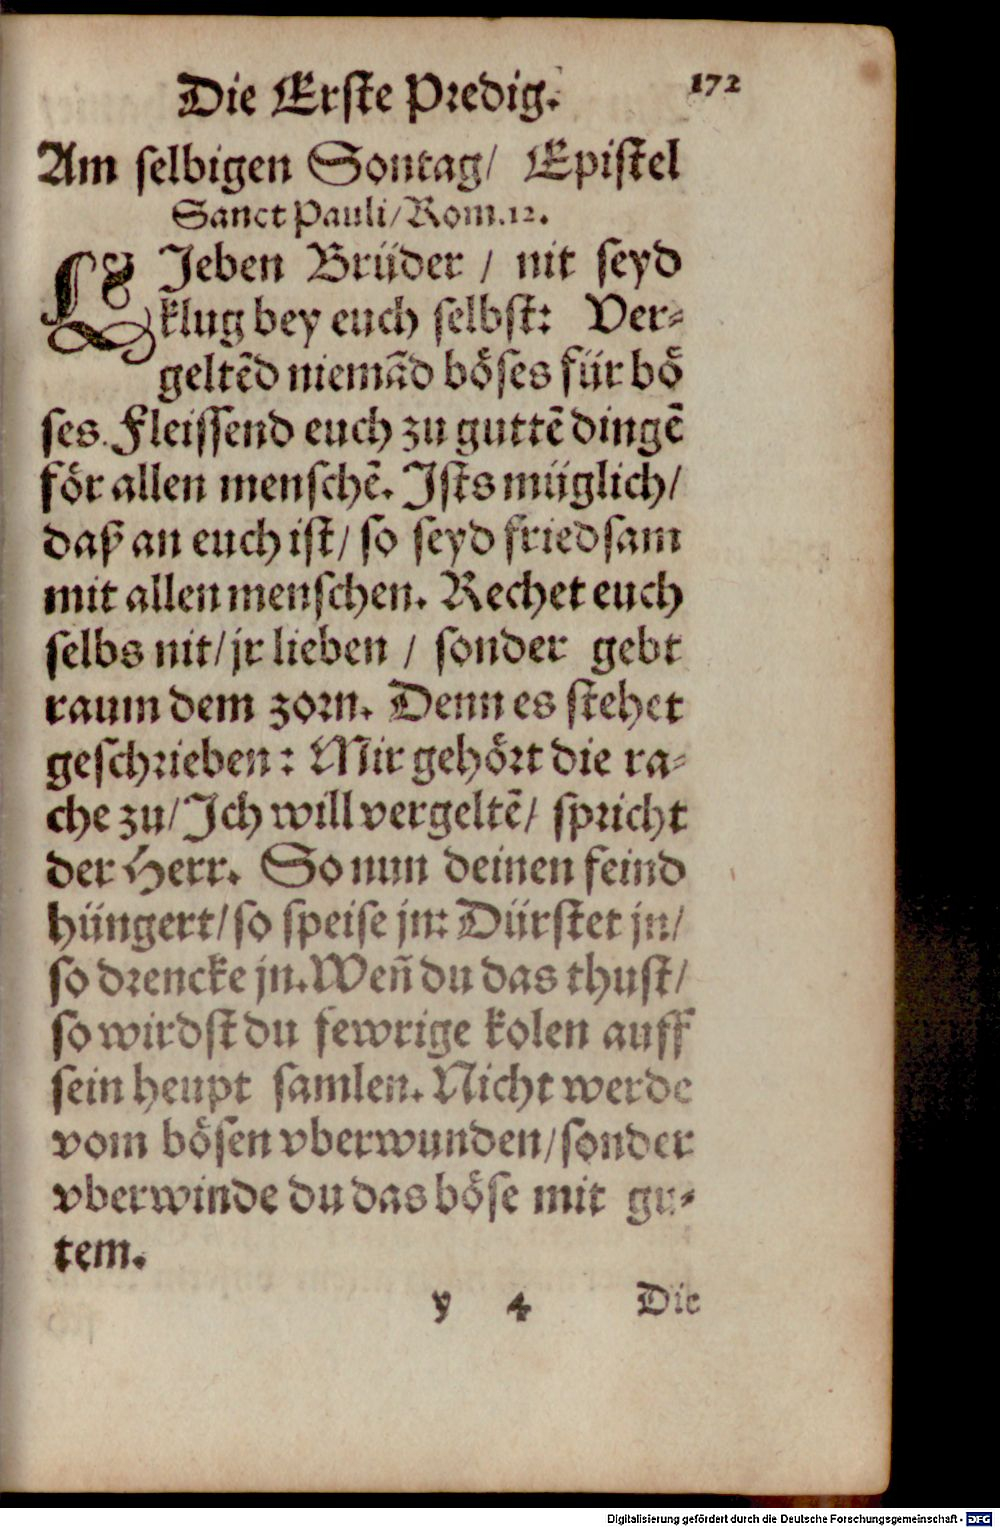 Die Erste Predig. 172
Am selbigen Sontag/ Epistel
Sanct Pauli/Rom.12.
LJeben Brüder / nit seyd
klug bey euch selbst: Ver-
geltẽd niemãd böses für bö
ses. Fleissend euch zu guttẽ dingẽ
för allen menschẽ. Jsts müglich/
daß an euch ist/ so seyd friedsam
mit allen menschen. Rechet euch
selbs nit/jr lieben / sonder gebt
raum dem zorn. Denn es stehet
geschrieben: Mir gehört die ra-
che zu/Jch will vergeltẽ/ spricht
der Herr. So nun deinen feind
hüngert/so speise jn: Dürstet jn/
so drencke jn. Weñ du das thust/
so wirdst du fewrige kolen auff
sein heupt samlen. Nicht werde
vom bösen vberwunden/sonder
vberwinde du das böse mit gu-
tem.
y 4 Die
Digitalisierung gefördert durch die Deutsche Forschungsgemeinschaft - DFG